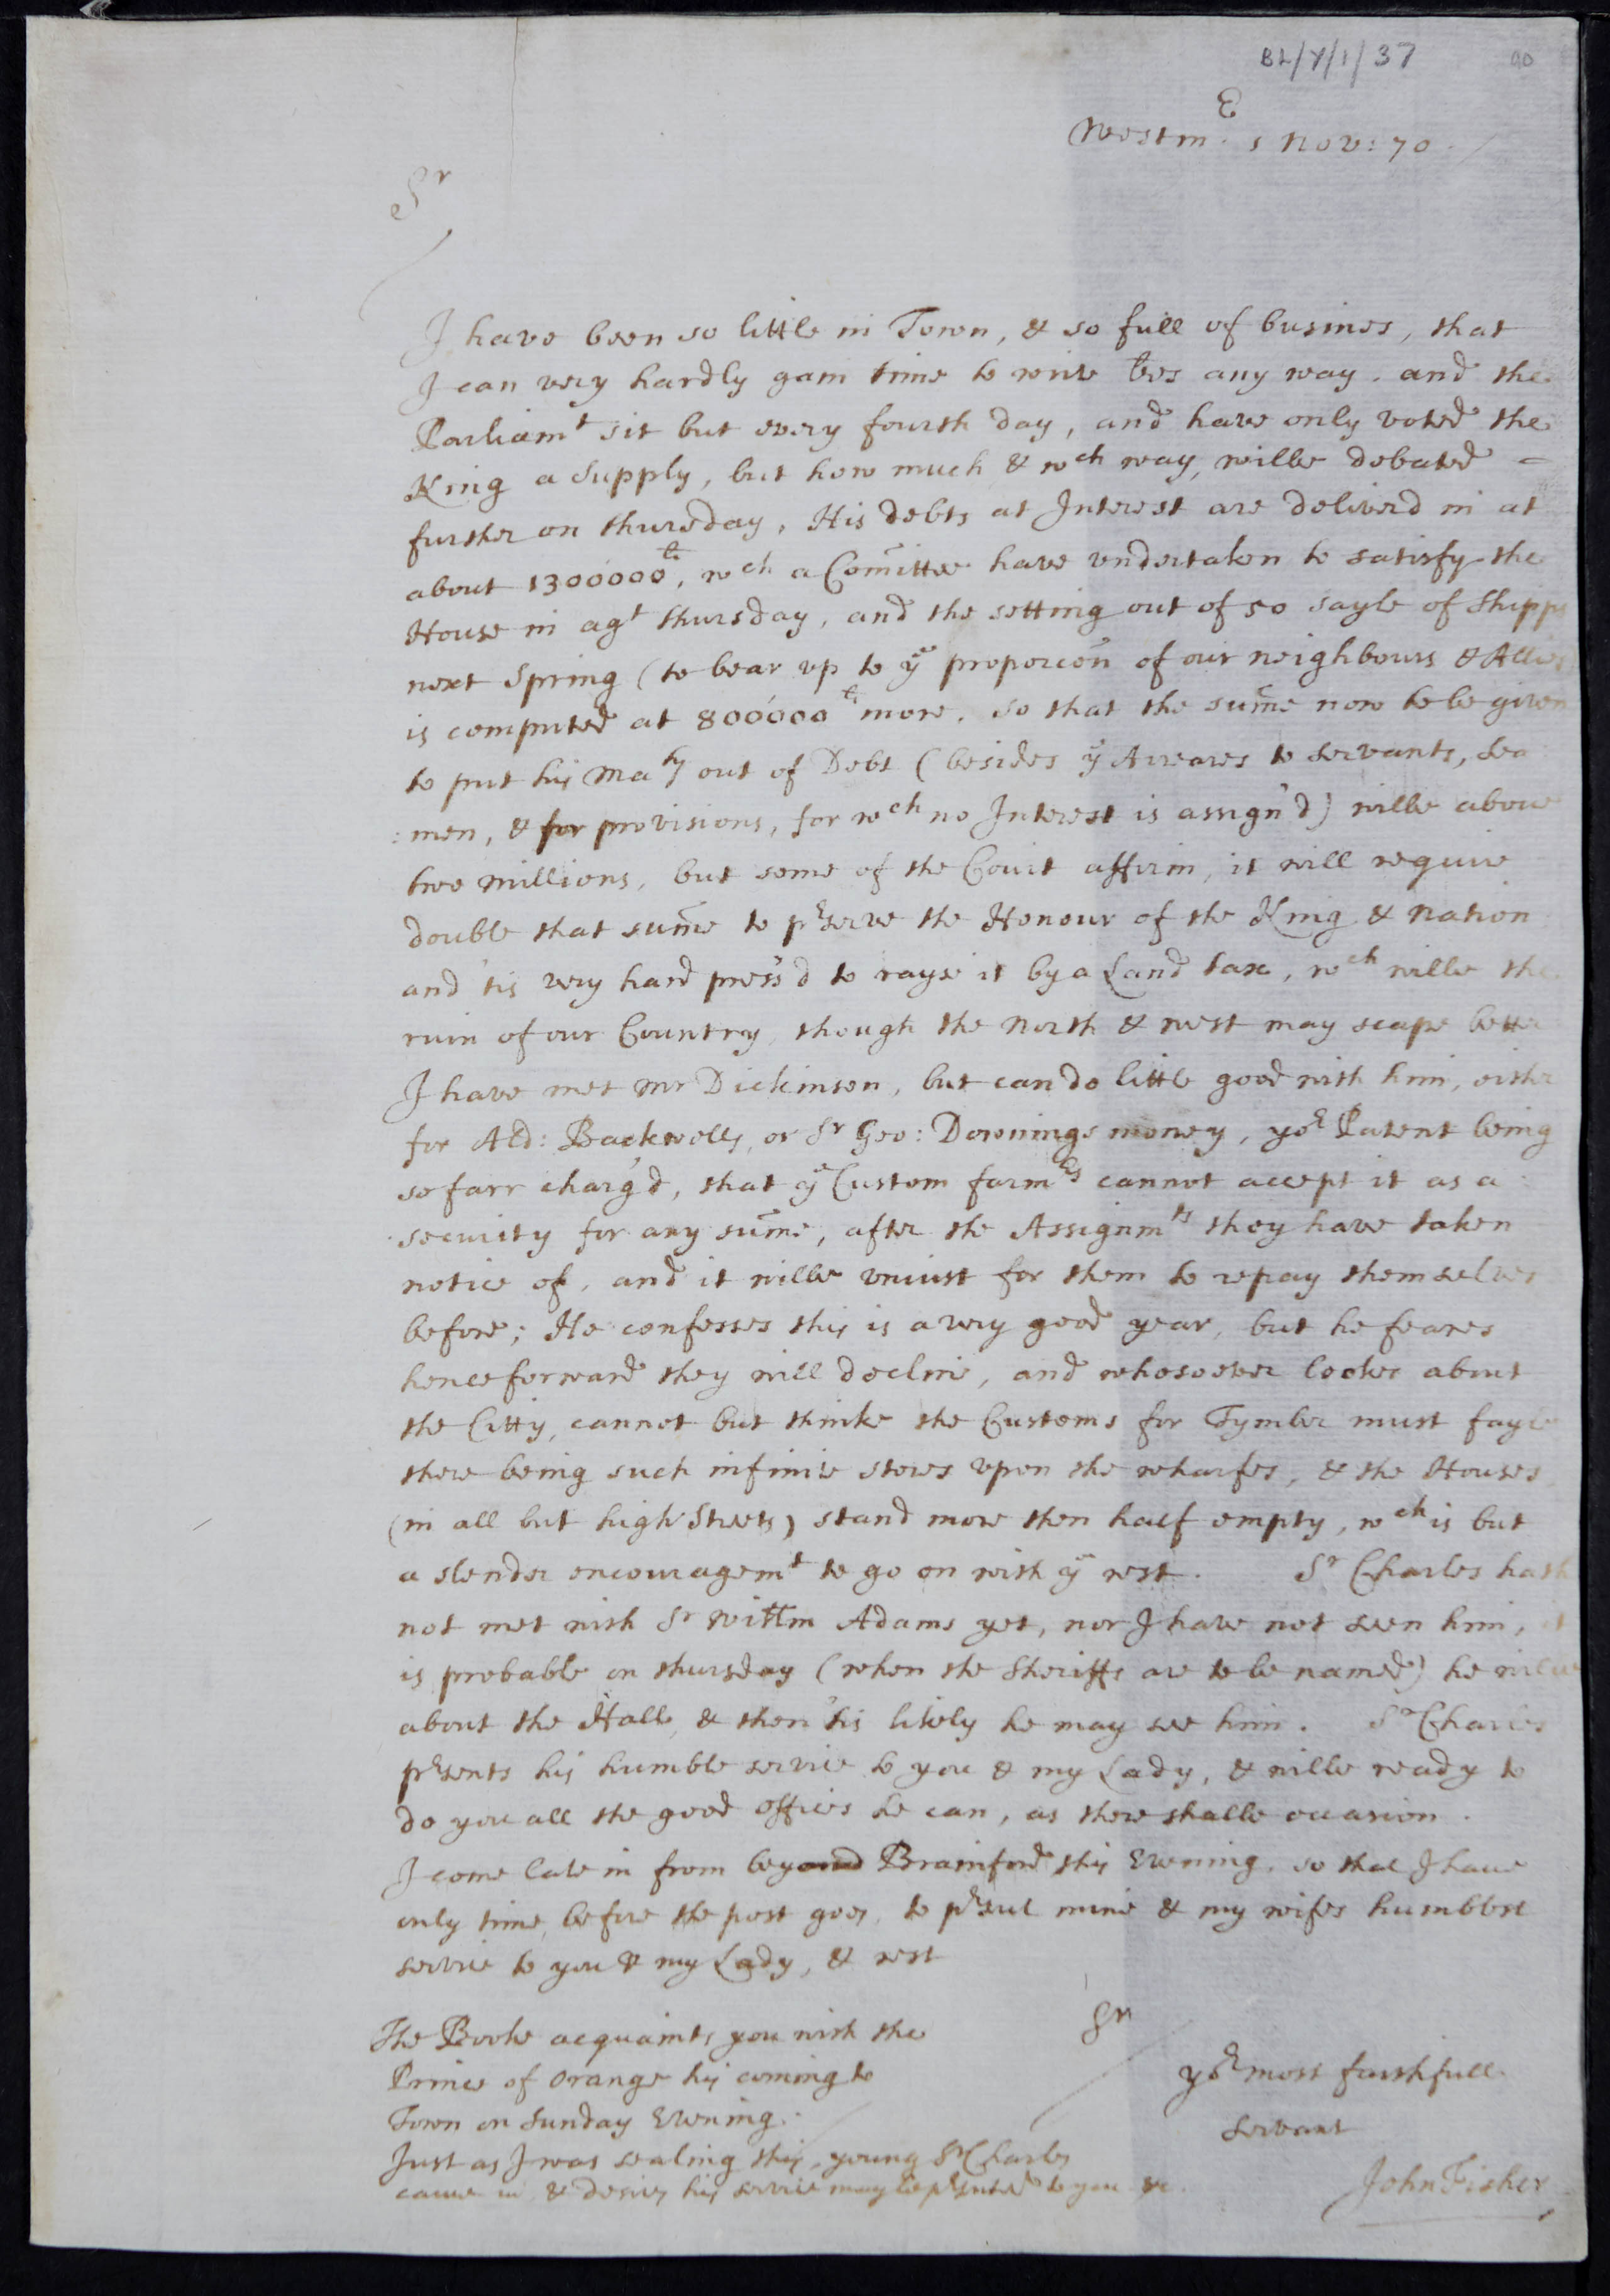 BL/Y/1/37 90
Westmr. 1 Nov: 70
Sr
I have been so little in Town, & so full of busines, that
I can very hardly gain time to write tres any way. and the
Parliamt sit but every fourth day, and have only voted the
King a Supply, but how much & wch way, wilbe debated =
further on thursday, His debts at Interest are deliverd in at
about 1300000li, wch a Comittee have undertaken to satisfy the
House in agt thursday, and the setting out of 50 sayle of Shipps
next Spring (to bear up to ye proporcon of our neighbours & Allies
is computed at 800000li more. so that the sume now to be given
to put his Maty out of Debt (besides ye Arreares to servants, sea
:men, & for provisions, for wch no Interest is assign'd) wilbe above
two millions, but some of the Court affirm, it will require
double that sume to pserve the Honour of the King & Nation
and 'tis very hard press'd to rayse it by a Land tax, wch wilbe the
ruin of our Country, though the North & West may scape better
I have met Mr Dickinson, but can do little good with him, either
for Ald: Backwells, or Sr Geo: Downings money, yor Patent being
so farr charg'd, that ye Custom farmrs cannot accept it as a
security for any sume, after the Assignmts they have taken
notice of, and it wilbe uniust for them to repay themselves
before; He confesses this is a very good year, but he feares
henceforward they will decline, and whosoever lookes about
the Citty, cannot but thinke the Customs for Tymber must fayle
there being such infinite stores upon the wharfes, & the Houses
(in all but high Streets) stand more then half empty, wch is but
a slender encouragemt to go on with ye rest. Sr Charles hath
not met with Sr Willm Adams yet, nor I have not seen him, it
is probable on thursday (when the Sheriffs are to be named) he wilbe
about the Hall, & then 'tis likely he may see him. Sr Charles
psents his humble service to you & my Lady, & wilbe ready to
do you all the good offices he can, as there shalbe occasion.
I come late in from beyond Brainford this Evening, so that I have
only time, before the post goes, to psent mine & my wifes humblest
service to you & my Lady, & rest
Sr
yor most faithfull
servant
John Fisher
The Booke acquaints you with the
Prince of Orange his coming to
Town on Sunday Evening.
Just as I was sealing this, young Sr Charles
came in, & desires his service may be psented to you &c.